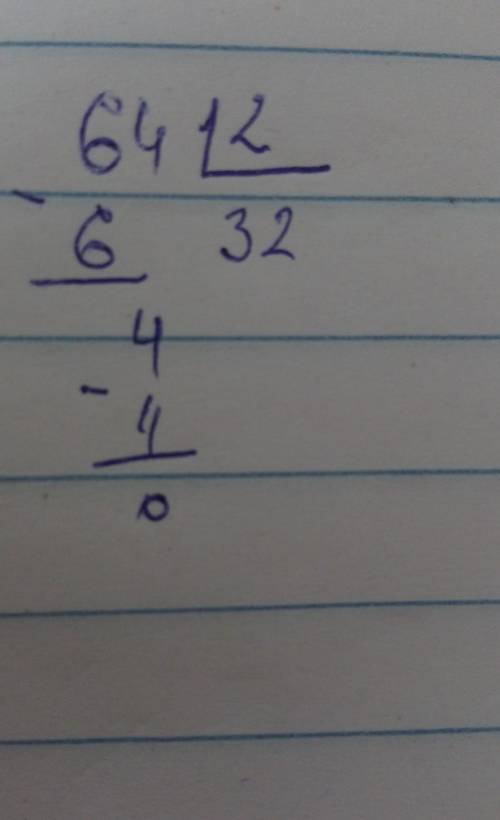 64 2
- 6 32
4
- 4
0